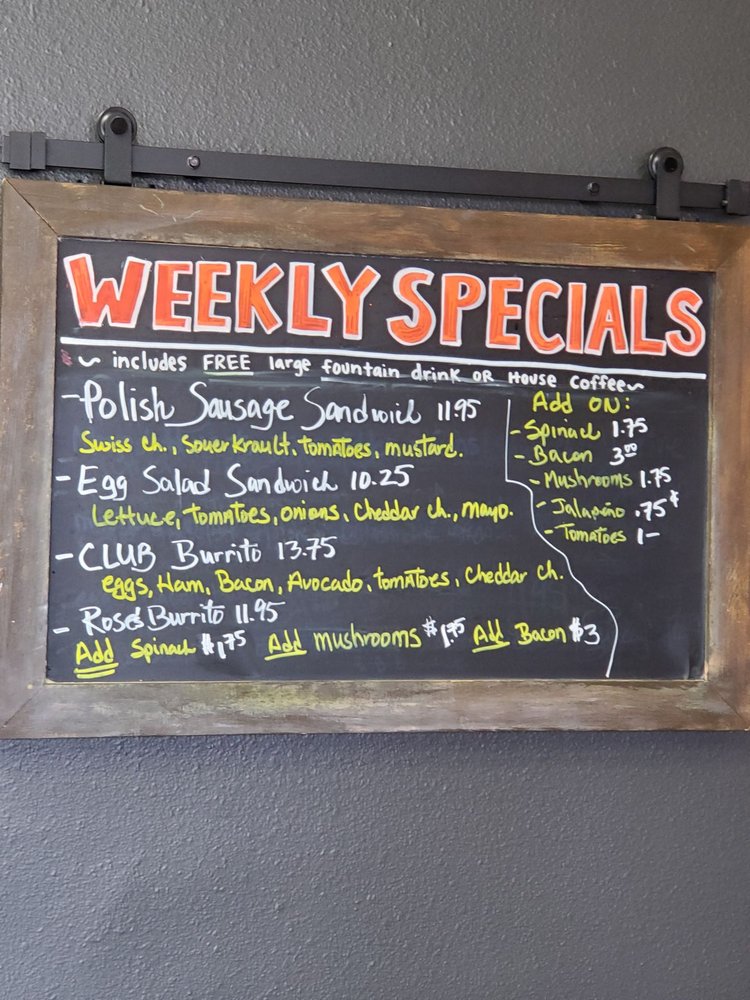 WEEKLY SPECIALS
~ includes FREE large fountain drink OR House Coffee ~
- Polish Sausage Sandwich 11.95
Swiss ch., Souerkrault, tomatoes, mustard.
- Egg Salad Sandwich 10.25
Lettuce, tomatoes, onions, Cheddar ch., mayo.
- CLUB Burrito 13.75
eggs, Ham, Bacon, Avocado, tomatoes, Cheddar ch.
- Rose's Burrito 11.95
Add Spinach $1.75 Add mushrooms $1.75 Add Bacon $3
Add ON:
- Spinach 1.75
- Bacon 3.00
- Mushrooms 1.75
- Jalapeño .75¢
- Tomatoes 1-